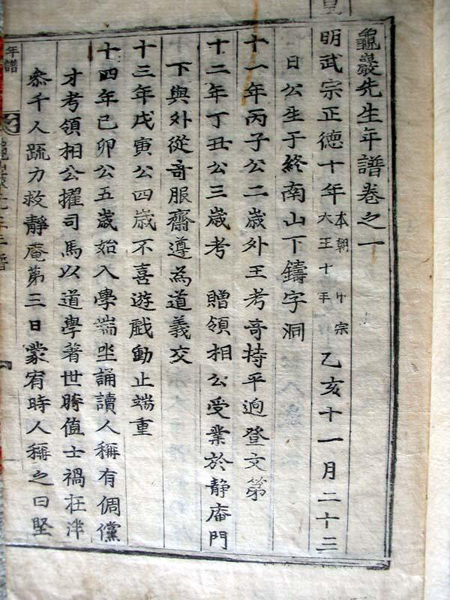 龜巖先生年譜卷之一
明武宗正德十年本朝中宗大王十年乙亥十一月二十三
日公生于終南山下鑄字洞
十一年丙子公二歲外王考奇持平逈登文第
十二年丁丑公三歲考 贈領相公受業於靜庵門
下與外從奇服齋遵爲道義交
十三年戊寅公四歲不喜遊戲動止端重
十四年己卯公五歲始入學端坐誦讀人稱有倜儻
才考領相公擢司馬以道學著世時値士禍在泮
叅千人疏力救靜庵第三日蒙宥時人稱之曰堅
年譜